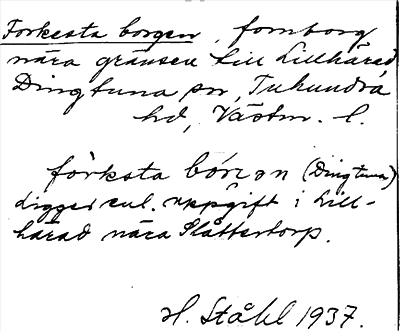 Forkesta borgen, fornborg
nära gränsen till Lillhärad,
Dingtuna sn, Tuhundra
hd, Västm. l.
fò̀rksta bór̨ən (Dingtuna)
ligger enl. uppgift i Lill-
härad nära Slåttertorp.
H. Ståhl 1937.